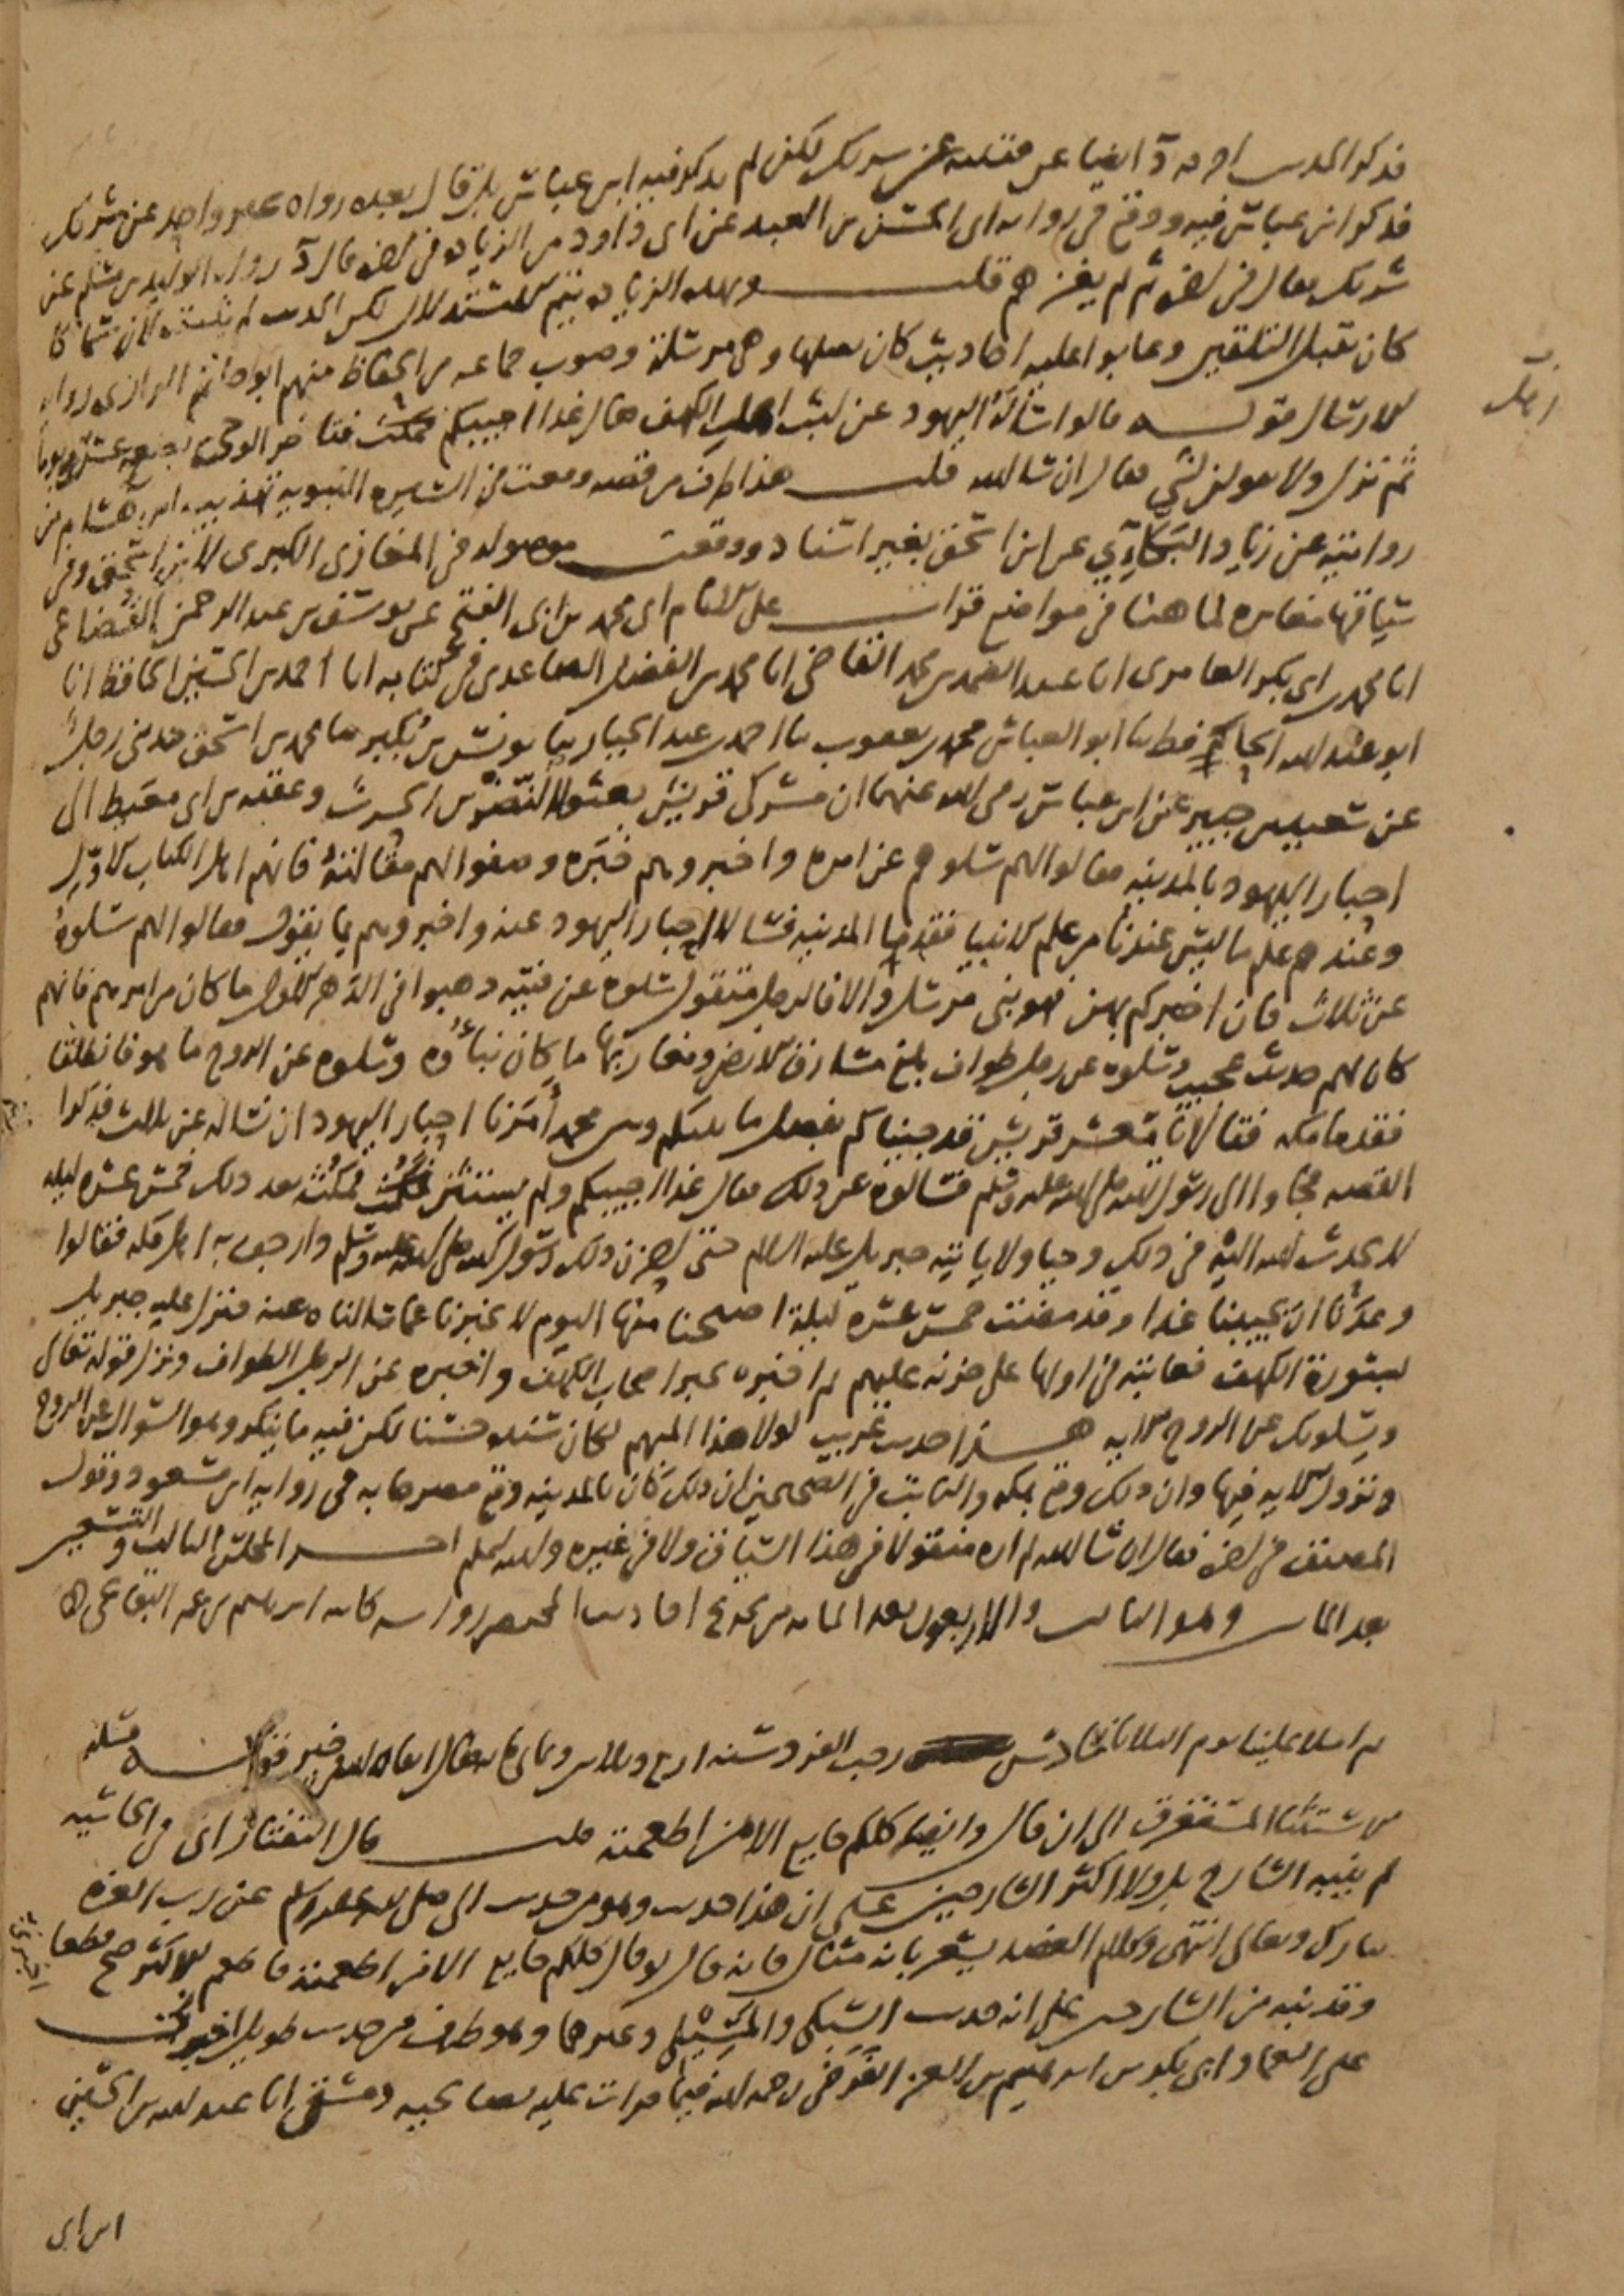 فذكر الحديث اخرجه د ايضا عن قتيبة عن شريك لكن لم يذكر فيه ابن عباس بل قال بعده رواه غير واحد عن شريك
فذكر ابن عباس فيه ووقع في رواية ابي الحسن بن العبد عن ابي داود من الزيادة في اخره قال د رواه الوليد بن مسلم عن
شريك وقال في اخره ثم لم يغزهم قلت وبهذه الزيادة يتم الاستدلال لكن الحديث لم يثبت لان سماكا
كان يقبل التلقين وعابوا عليه احاديث كان يصلها وهي مرسلة وصوب جماعة من الحفاظ منهم ابو حاتم الرازي رواية
الارسال قوله قالوا سألة اليهود عن لبث اهل الكهف فقال غدا اجيبكم فتأخر الوحي بضعة عشر يوما
ثم نزل ولا تقولن لشي فقال ان شا الله قلت هذا طرف من قصة وقعت في السيرة النبوية تهذيب ابن هشام من
روايته عن زياد البكآي عن ابن اسحق بغير اسناد ووقعت موصولة في المغازي الكبرى لابن اسحق وفي
سياقها مغايرة لما هنا في مواضع قرات على الامام ابي محمد بن ابي الفتح عن يوسف بن عبد الرحمن القضاعي
انا محمد بن ابي بكر العامري انا عبد الصمد بن محمد القاضي انا محمد بن الفضل الصاعدي في كتابه انا احمد بن الحسين الحافظ انا
ابو عبد الله الحافظ نا ابو العباس محمد بن يعقوب نا احمد بن عبد الجبار نا يونس بن بكير نا محمد بن اسحق حدثني رجل
عن سعيد بن جبير عن ابن عباس رضي الله عنهما ان مشركي قريش بعثوا النضر بن الحرث وعقبة بن ابي معيط الى
احبار اليهود بالمدينه فقالوا لهم سلوهم عن امره واخبروهم خبره وصفوا لهم مقالته فانهم اهل الكتاب الاول
وعندهم علم ما ليس عندنا من علم الانبيا فقدما المدينه فسالا احبار اليهود عنه واخبروهم بما يقول فقالوا لهم سلوه
عن ثلاث فان اخبركم بهن فهو نبي مرسل والا فالرجل متقول سلوه عن فتية ذهبوا في الدهر الاول ما كان من امرهم فانهم
كان لهم حديث عجيب وسلوه عن رجل طواف بلغ مشارق الارض ومغاربها ما كان نبأوه وسلوه عن الروح ما هو فانطلقا
فقدما مكه فقالا يا معشر قريش قد جيناكم بفصل ما بينكم وبين محمد أمرنا احبار اليهود ان نساله عن ثلاث فذكروا
القصه فجاوا الى رسول الله صلى الله عليه وسلم فسالوه عن ذلك فقال غدا اجيبكم ولم يستثن فمكث بعد ذلك خمس عشره ليله
لا يحدث الله اليه في ذلك وحيا ولا ياتيه جبريل عليه السلام حتى احزن ذلك رسول الله صلى الله عليه وسلم وارجف به اهل مكه فقالوا
وعدنا ان يجيبنا غدا وقد مضت خمس عشره ليلة اصبحنا منها اليوم لا يخبرنا عما سالناه عنه فنزل عليه جبريل
بسورة الكهف فعاتبه في اولها على حزنه عليهم ثم اخبره بخبر اصحاب الكهف واخبره عن الرجل الطواف ونزل قوله تعالى
ويسلونك عن الروح الايه هذا حديث غريب لولا هذا المبهم لكان سنده حسنا لكن فيه ما ينكر وهو السوال عن الروح
ونزول الايه فيها وان ذلك وقع بمكه والثابت في الصحيحين ان ذلك كان بالمدينه وقع مصرحا به في رواية ابن مسعود وقول
المصنف في اخره فقال ان شا الله لم اره منقولا في هذا السياق ولا في غيره والله اعلم اخر المجلس الثالث والتسعين
بعد الماية وهو الثالث والاربعون بعد الماية من تخريج احاديث المختصر رواية كاتبه ابراهيم بن عمر البقاعي
ثم املا علينا يوم الثلاثا سادس رجب الفرد سنه اربع وثلاثين وثماني مايه فقال ابقاه الله في خير قوله مسلة
من سننا المستغرق الى ان قال وايضا كلكم جايع الا من اطعمته قلت قال التفتازاني في الحاشيه
لم ينبه الشارح بل ولا اكثر الشارحين على ان هذا حديث وهو من حديث النبي صلى الله عليه وسلم عن رب العزه
تبارك وتعالى انتهى وكلام العضد يشعر بانه مثال فانه قال لو قال كلكم جايع الا من اطعمته فاطعم الاكثر صح قطعا
وقد نبه من الشارحين على انه حديث السبكي وغيرهما وهو طرف من حديث طويل اخبرني
على العماد ابي بكر بن ابرهيم بن العز الفرضي رحمه الله فيما قرات عليه بصالحية دمشق انا عبد الله بن الحسين
ابن ابي